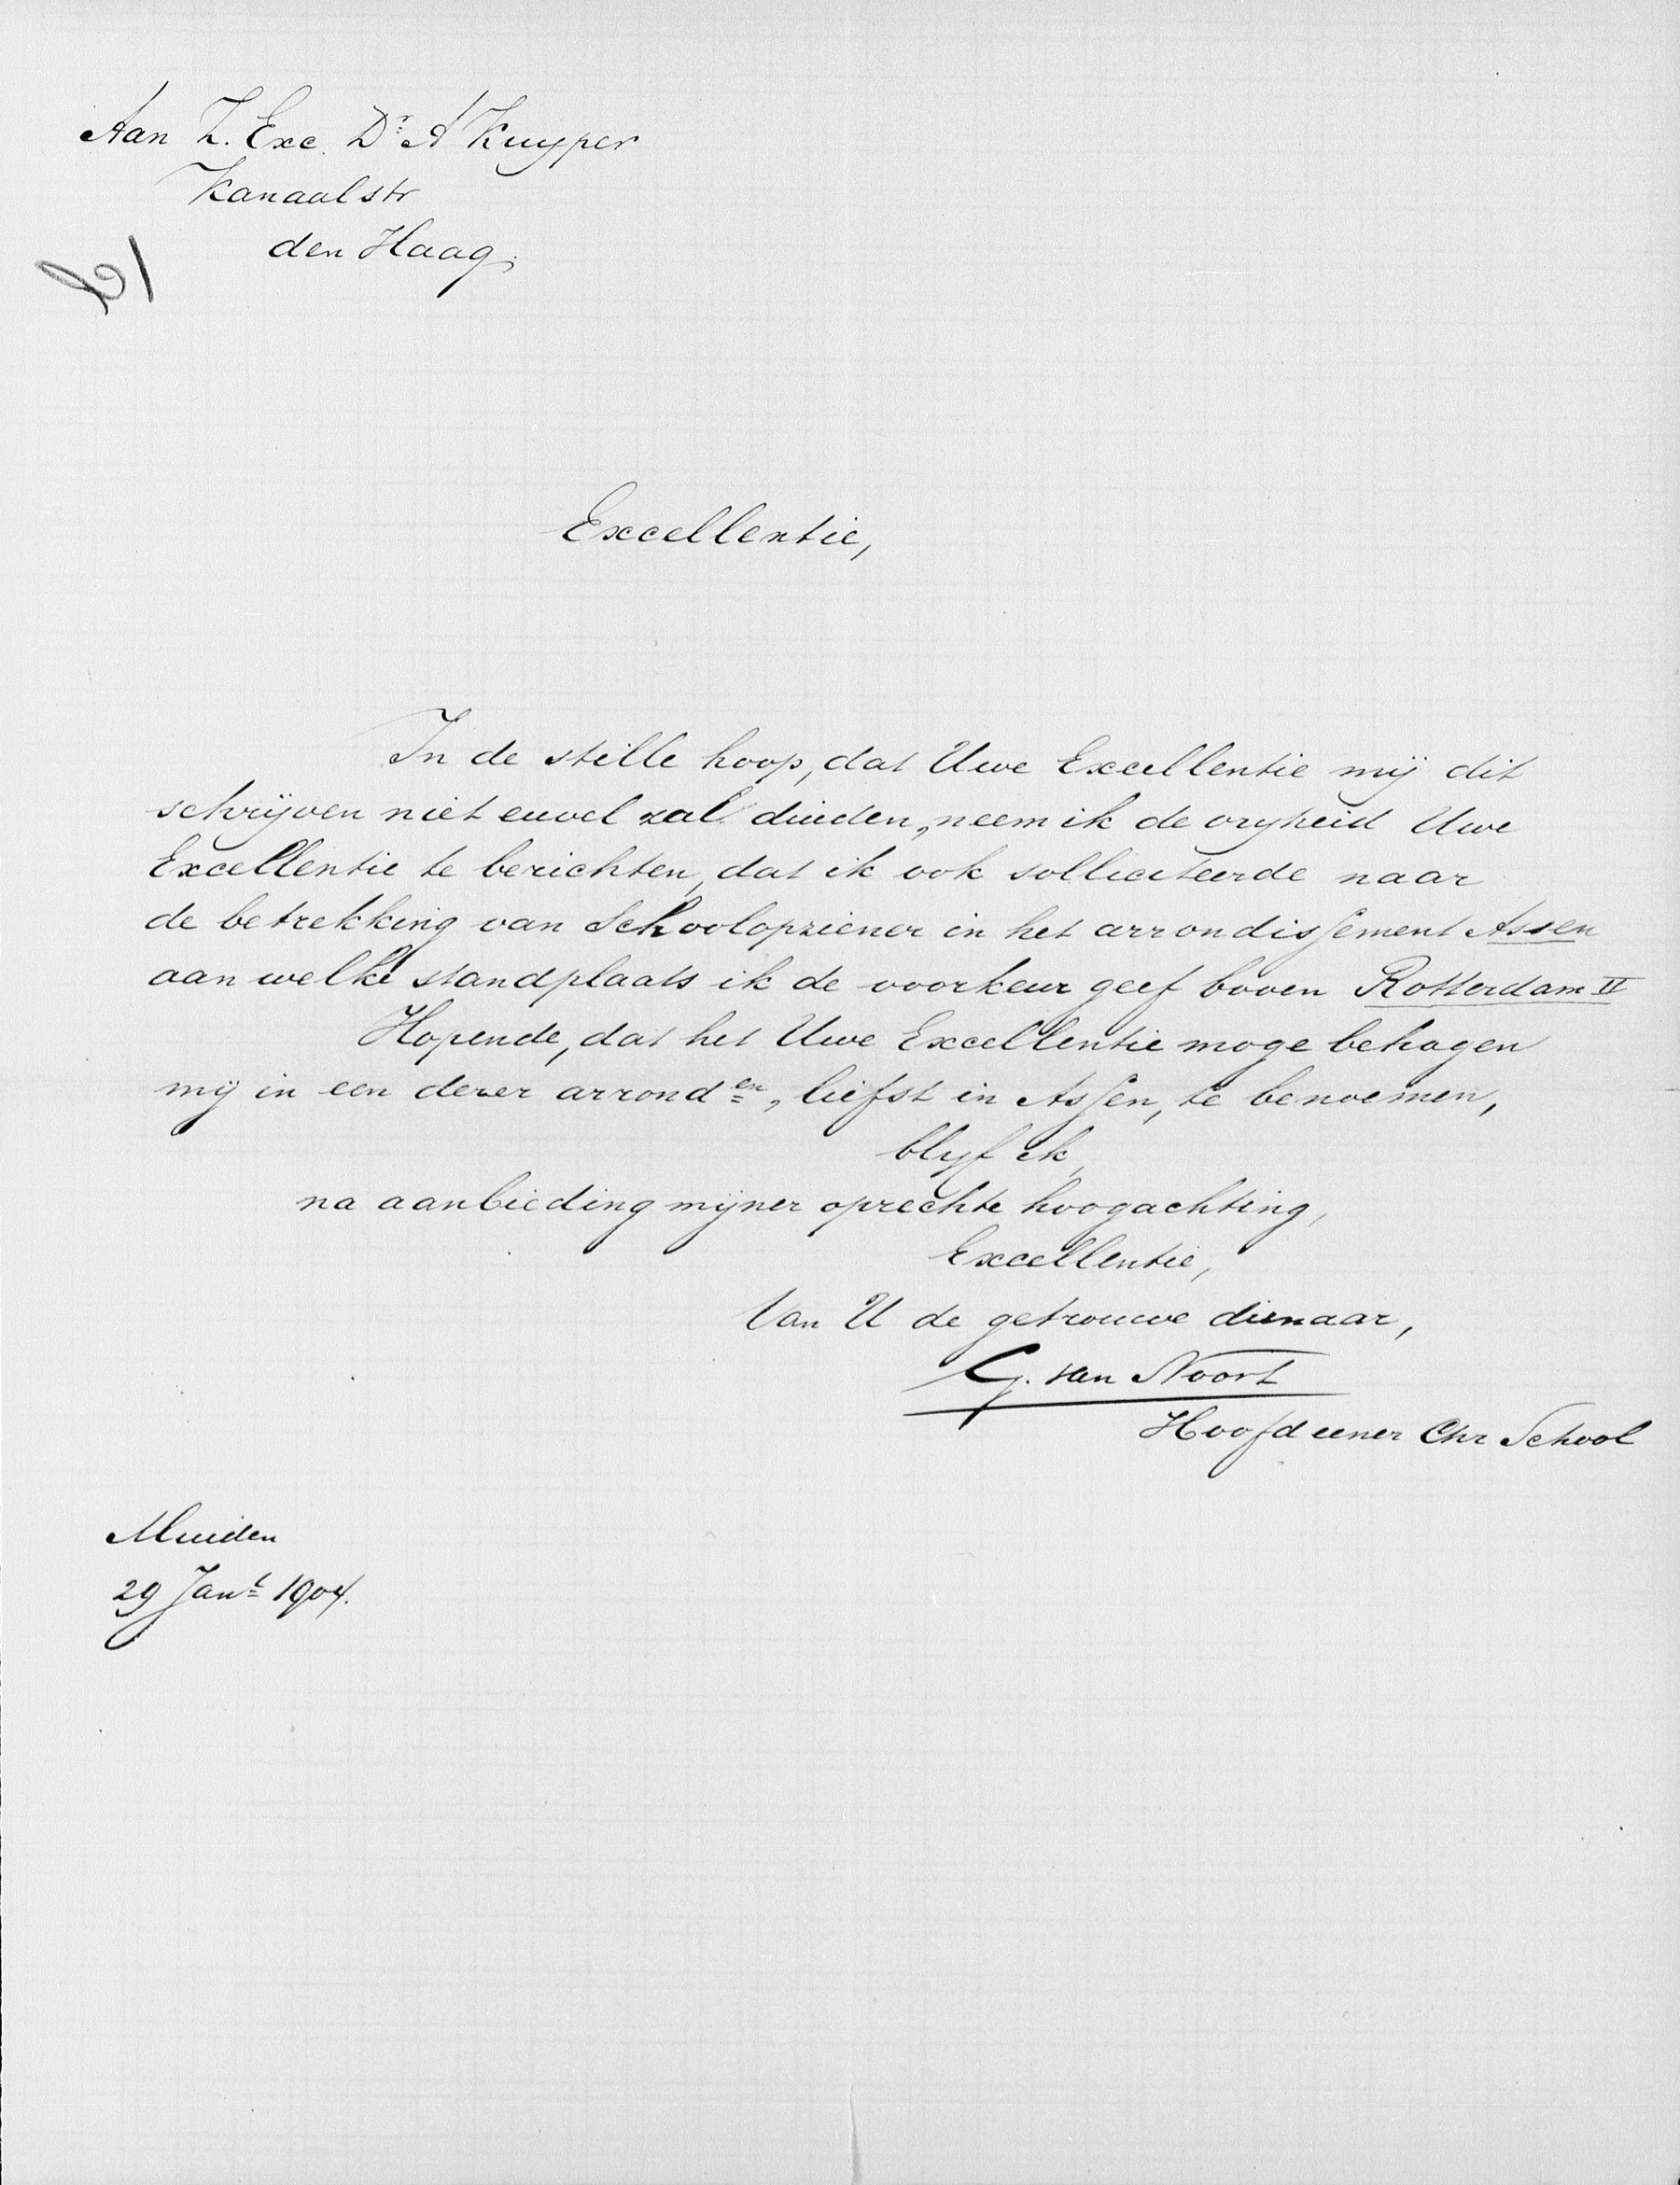 Aan Z. Exc. Dr. A Kuyper
Kanaalstr
den Haag.
Excellentie,
In de stille hoop, dat Uwe Excellentie mij dit
schrijven niet euvel zal duiden, neem ik de vryheid Uwe
Excellentie te berichten, dat ik ook solliciteerde naar
de betrekking van Schoolopziener in het arrondissement Assen
aan welke standplaats ik de voorkeur geef boven Rotterdam II
Hopende, dat het Uwe Excellentie moge behagen
mij in een dezer arronden, liefst in Assen, te benoemen,
blyf ik,
na aanbieding mijner oprechte hoogachting,
Excellentie,
Van U de getrouwe dienaar,
G. van Noort
Hoofd eener Chr School
Muiden
29 Jant 1904.